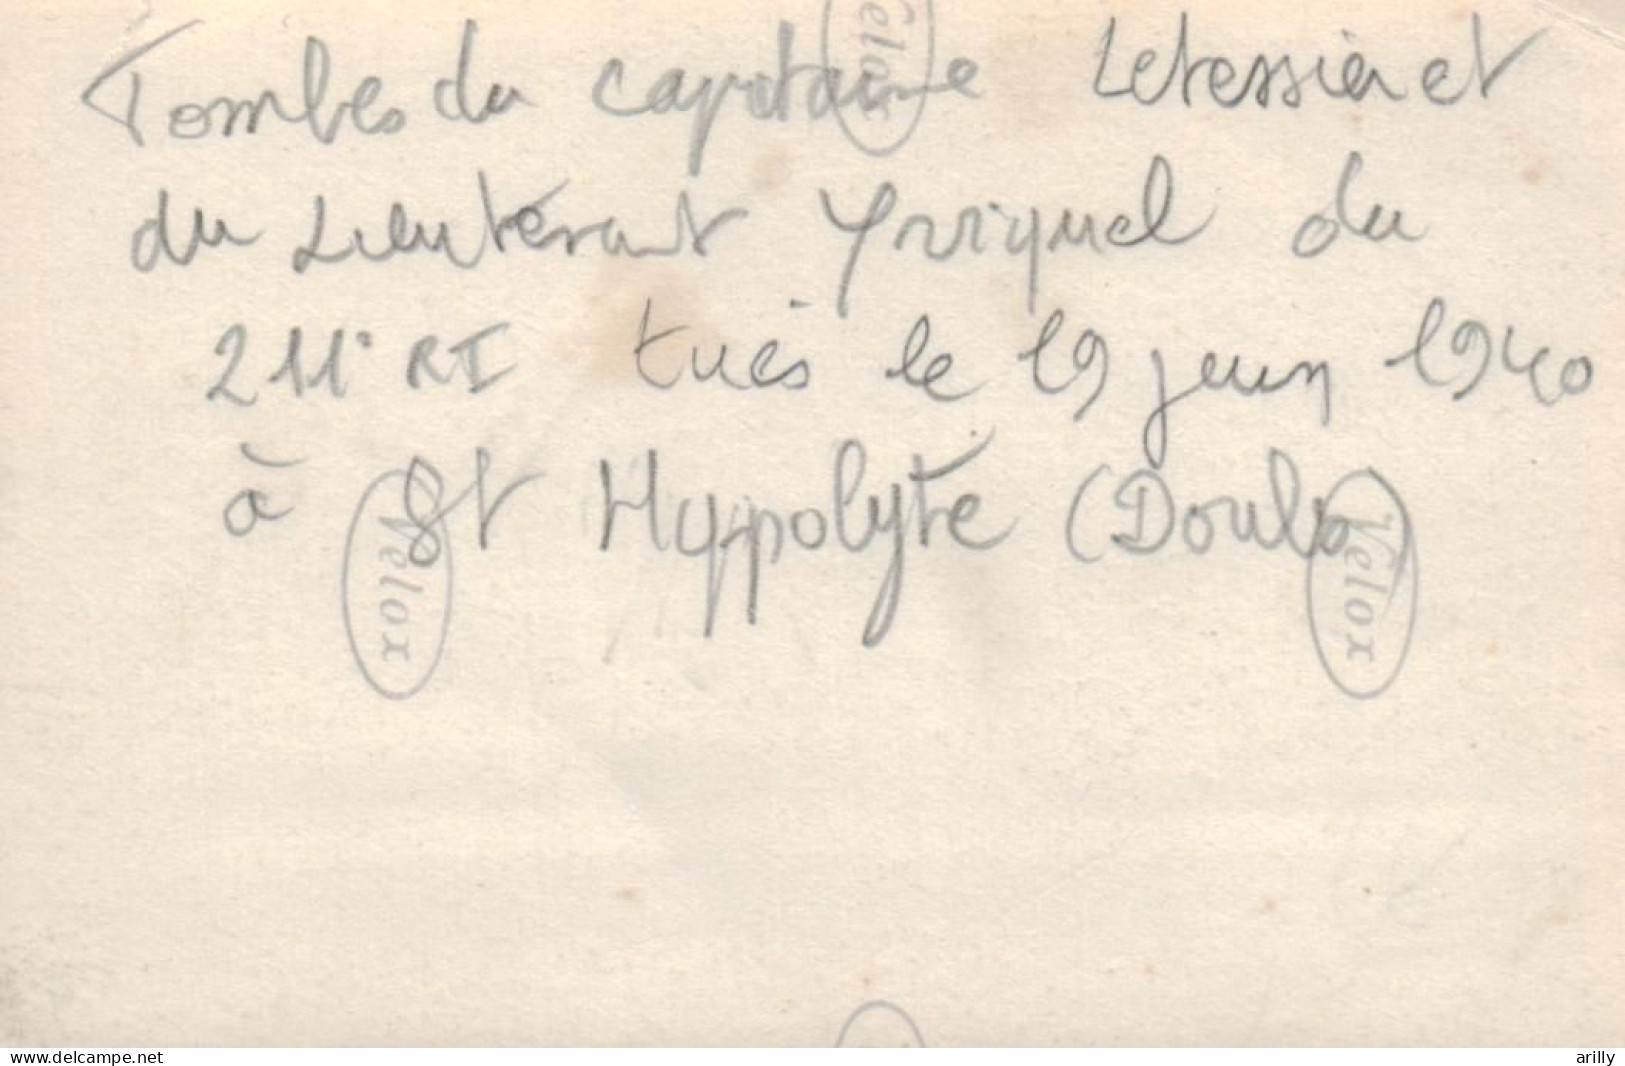 Tombes du capitaine Letessier et
du Lieutenant Yviquel du
211e RI tués le 19 juin 1940
à St Hyppolyte (Doubs)
Velox
Velox
Velox
www.delcampe.net
arilly